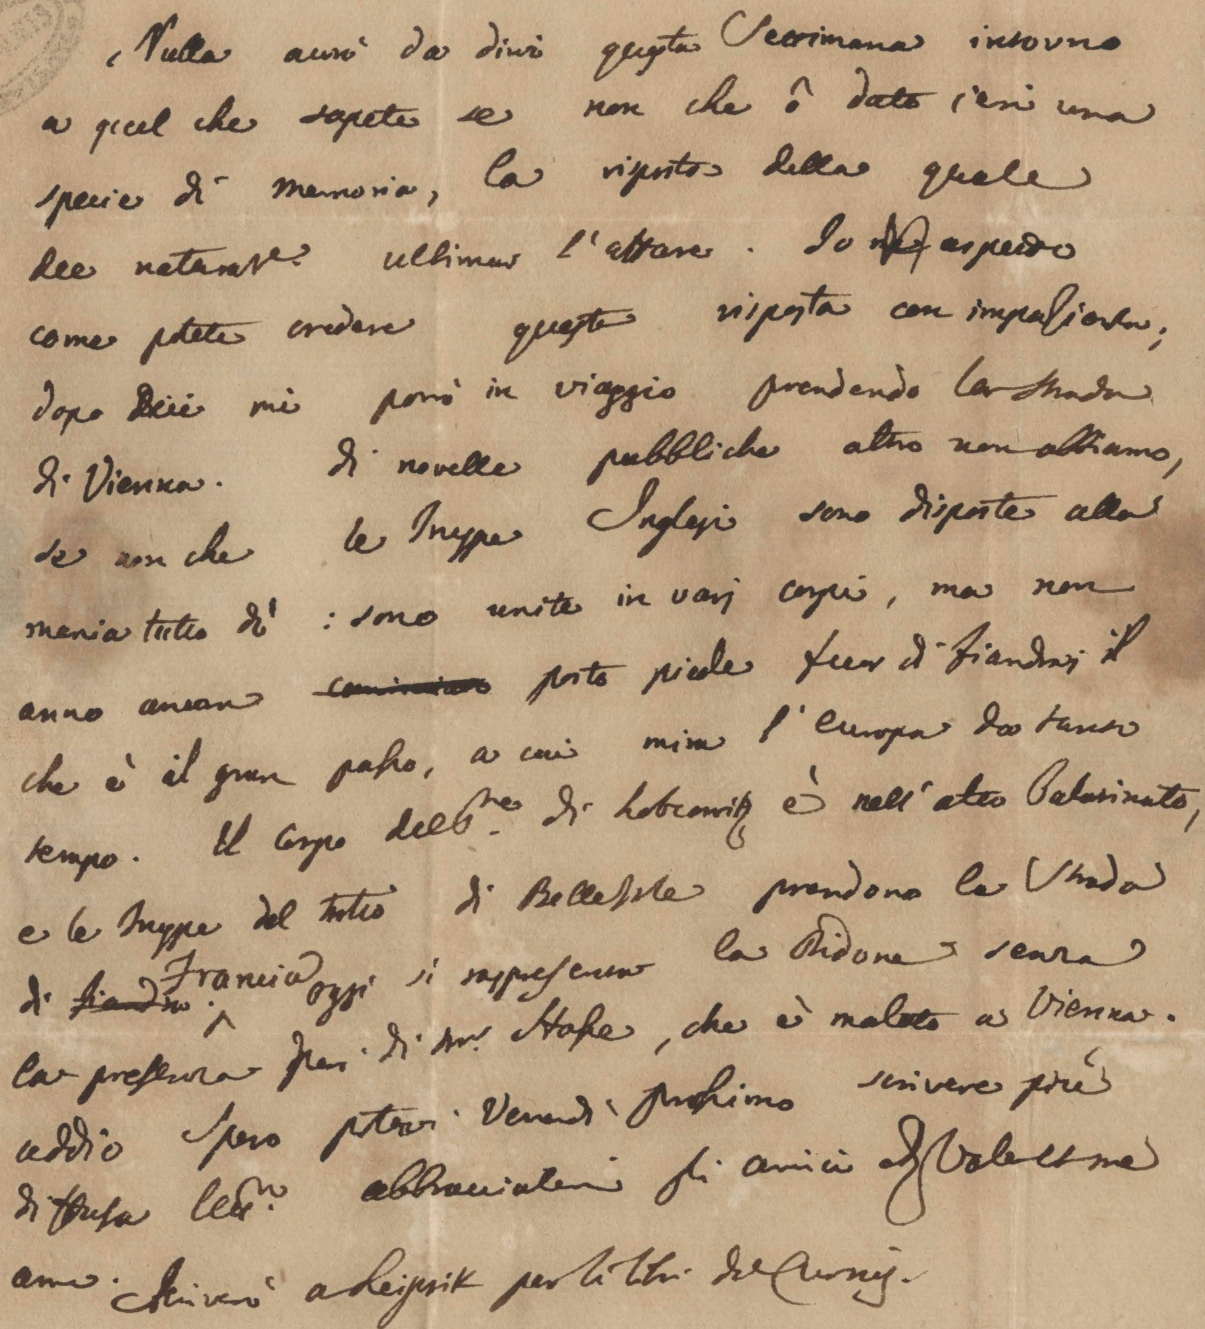 Nulla avrò da dirvi questa Settimana intorno
a quel che sapete se non che ô dato ieri una
specie di memoria, la risposta della quale
dee natural.te ultimar l'affare. Io aspetto
come potete credere questa risposta con impazienza;
dopo di mi porrò in viaggio prendendo la strada
di Vienna. di novelle pubbliche altro non abbiamo,
se non che le truppe Inglesi sono disposte alla
mania tutto dì : sono unite in varj corpi, ma non
anno ancora posto piede fuor di fiandra; il
che è il gran passo, a cui mira l'Europa da tanto
tempo. Il Corpo del P.pe di Lobcowitz è nell'alto Palatinato,
e le truppe del di Belleisle prendono la Strada
di Francia. oggi si rappresenta la Didone senza
la presenza di Mr. Hasse, che è malato a Vienna.
addio Spero potervi Venerdì prossimo scrivere più
diffusa abbracciatemi gli amici Vale et me
ama. Scriverò a Leipsik per li libri del